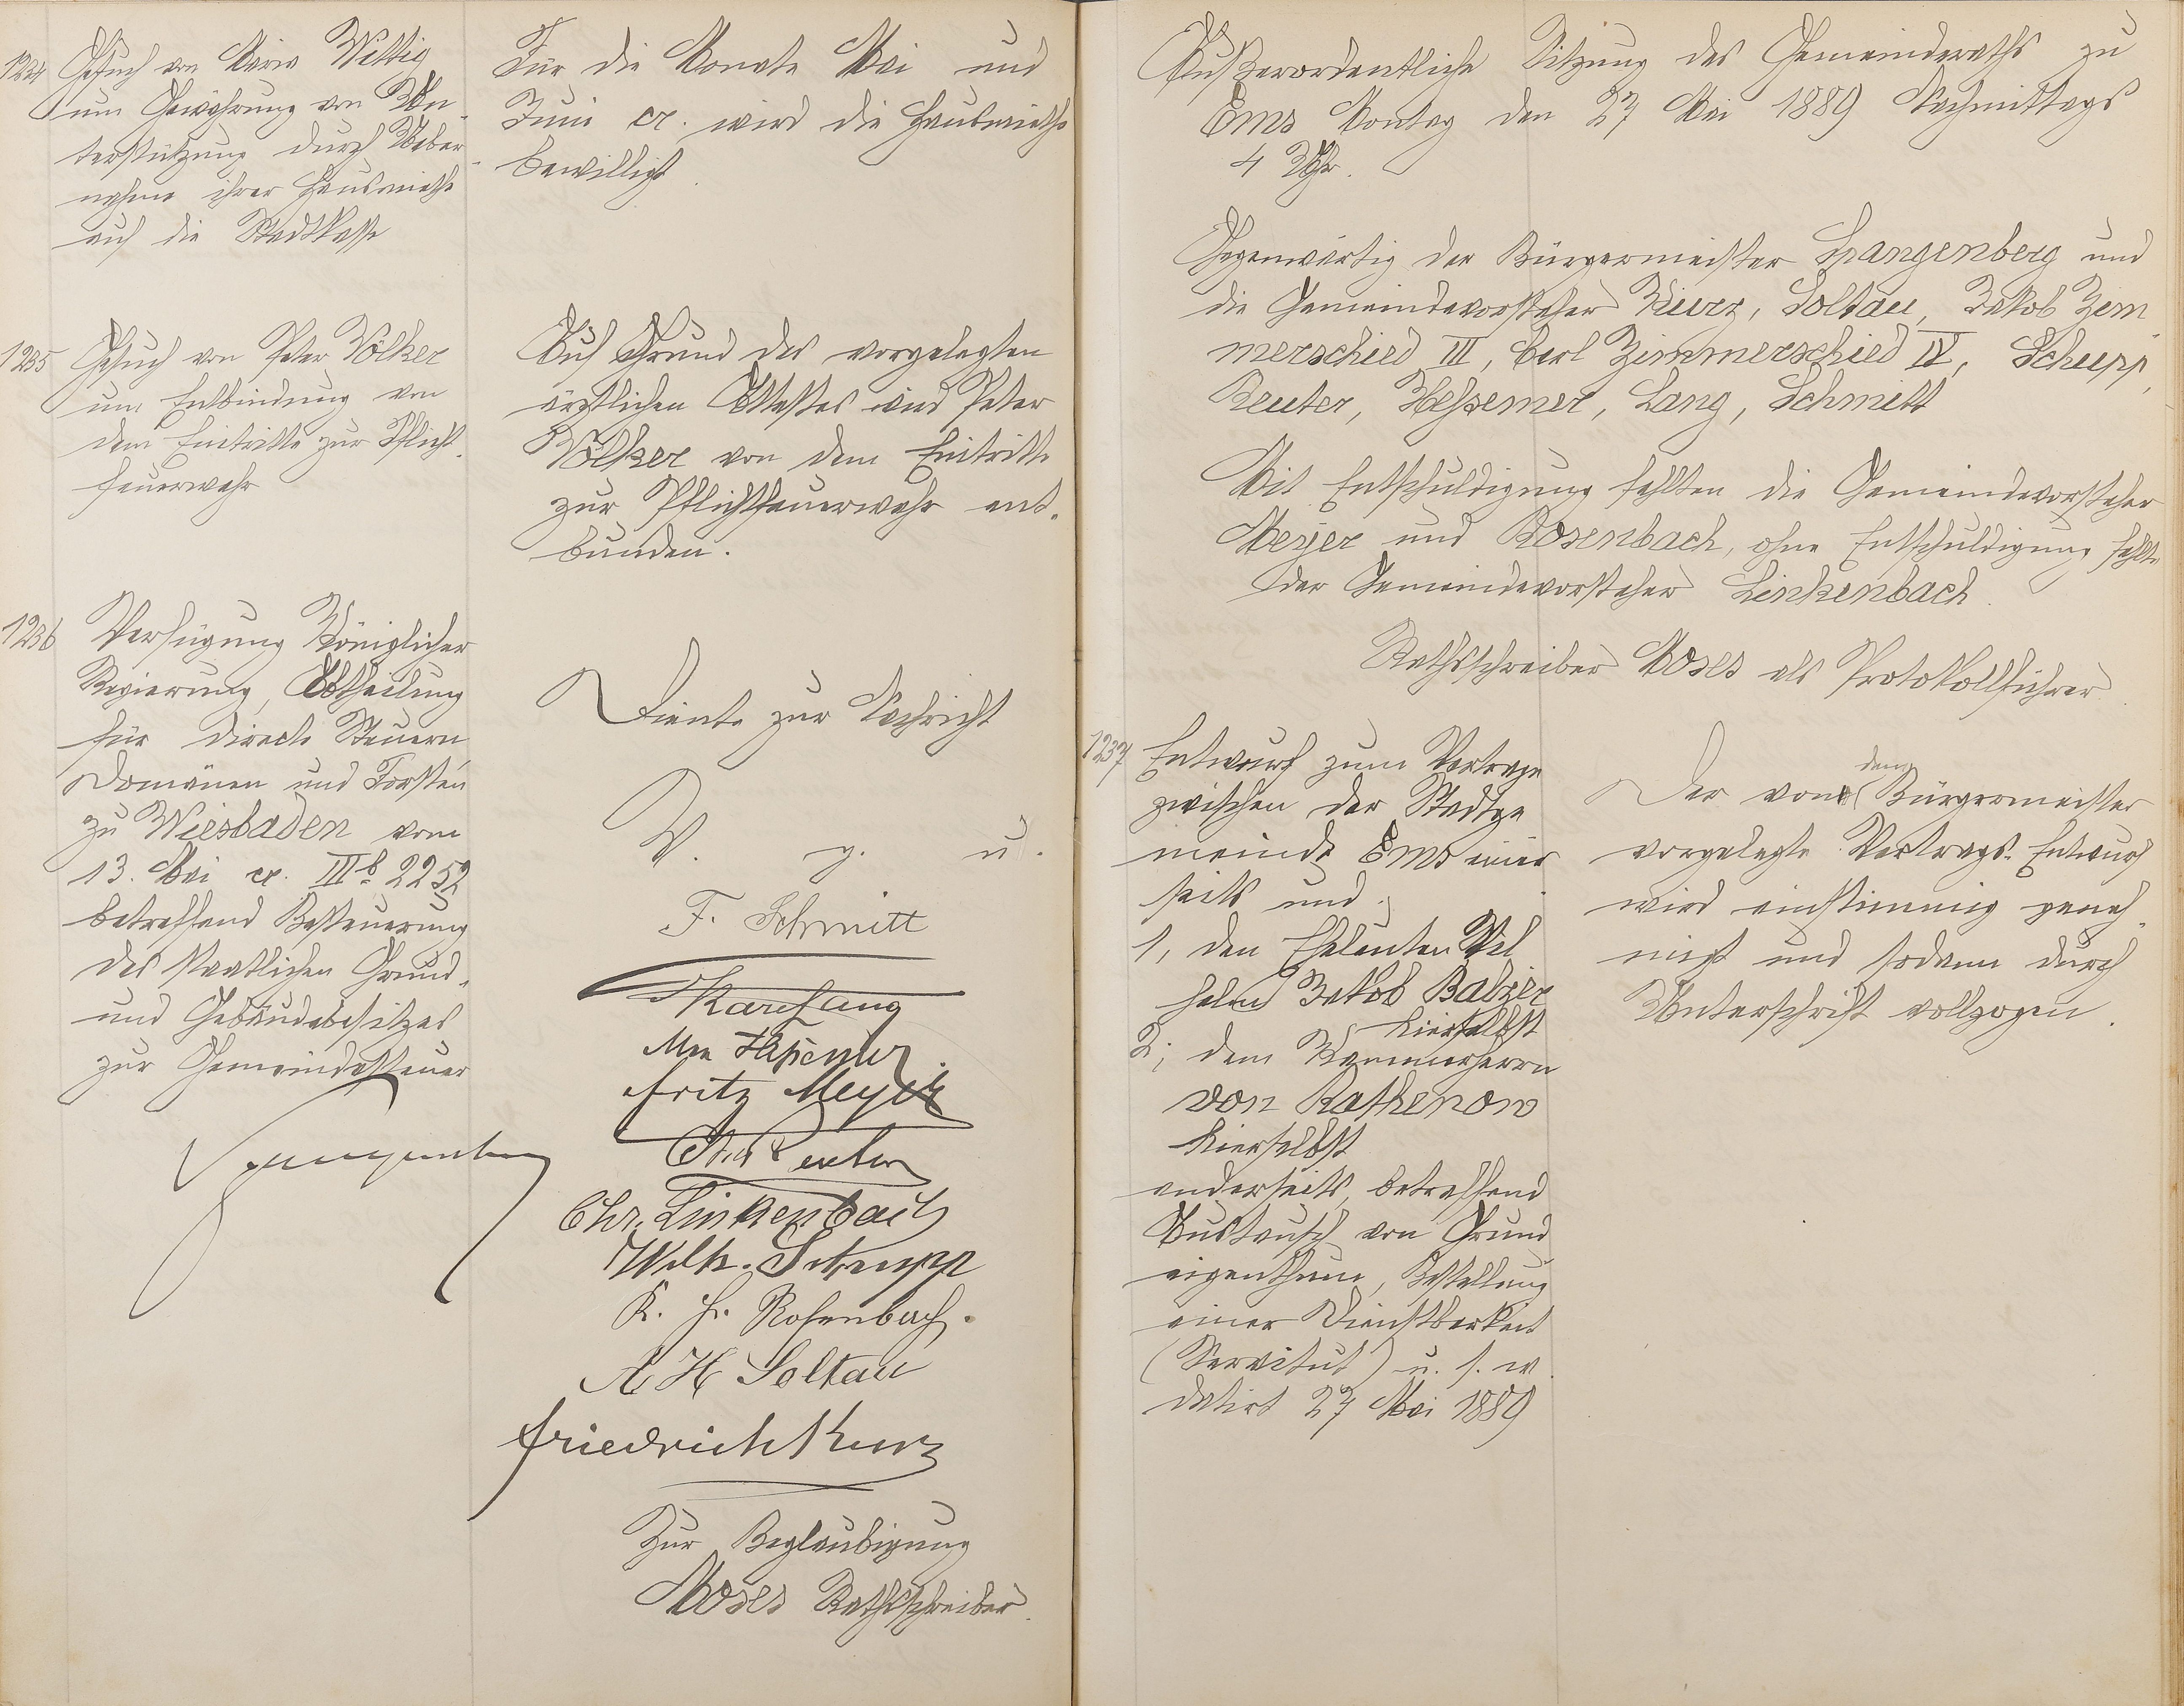 1234 Gesuch von Maria Wittig
um Gewährung von Un-
terstützung durch Ueber-
nahme ihrer Hausmiethe
auf die Stadtkasse
Für die Monate Mai und
Juni cr. wird die Hausmiethe
bewilligt
1235 Gesuch von Peter Völker
um Entbindung von
dem Eintritte zur Pflicht-
feuerwehr
Auf Grund des vorgelegten
ärztlichen Attestes wird Peter
Völker von dem Eintritte
zur Pflichtfeuerwehr ent-
bunden.
1236 Verfügung Königlicher
Regierung, Abtheilung
für directe Steuern,
Domänen und Forsten
zu Wiesbaden vom
13. Mai cr. IIIb 2252
betreffend Besteuerung
des staatlichen Grund-
und Gebäudebesitzes
zur Gemeindesteuer
Diente zur Nachricht
V. g. u.
F. Schmitt
Karl Lang
Hessemer
Fritz Meyer
Reuter
Chr. Linkenbach
Wilh. Schupp
K. Fr. Rosenbach.
A H Soltau
Friedrich Kurz
Spangenberg
Zur Beglaubigung
Moses Rathsschreiber.
Außerordentliche Sitzung des Gemeinderaths zu
Ems Montag den 27 Mai 1889 Nachmittags
4 Uhr.
Gegenwärtig der Bürgermeister Spangenberg und
die Gemeindevorsteher Kurz, Soltau, Jakob Zim-
merschied III, Carl Zimmerschied IV, Schupp,
Reuter, Hessemer, Lang, Schmitt
Mit Entschuldigung fehlten die Gemeindevorsteher
Meyer und Rosenbach, ohne Entschuldigung fehlte
der Gemeindevorsteher Linkenbach.
Rathsschreiber Moses als Protokollführer.
1237 Entwurf zum Vertrage
zwischen der Stadtge
meinde Ems einer
seits und
1, den Eheleuten Wil
helm Jakob Balzer
hierselbst
2; dem Kammerherrn
von Rathenow
hierselbst
anderseits, betreffend
Austausch von Grund
eigenthum, Bestellung
einer Dienstbarkeit
(Servitut) u. s. w.
datirt 27 Mai 1889
Der von dem Bürgermeister
vorgelegte Vertrags-Entwurf
wird einstimmig geneh-
migt und sodann durch
Unterschrift vollzogen.